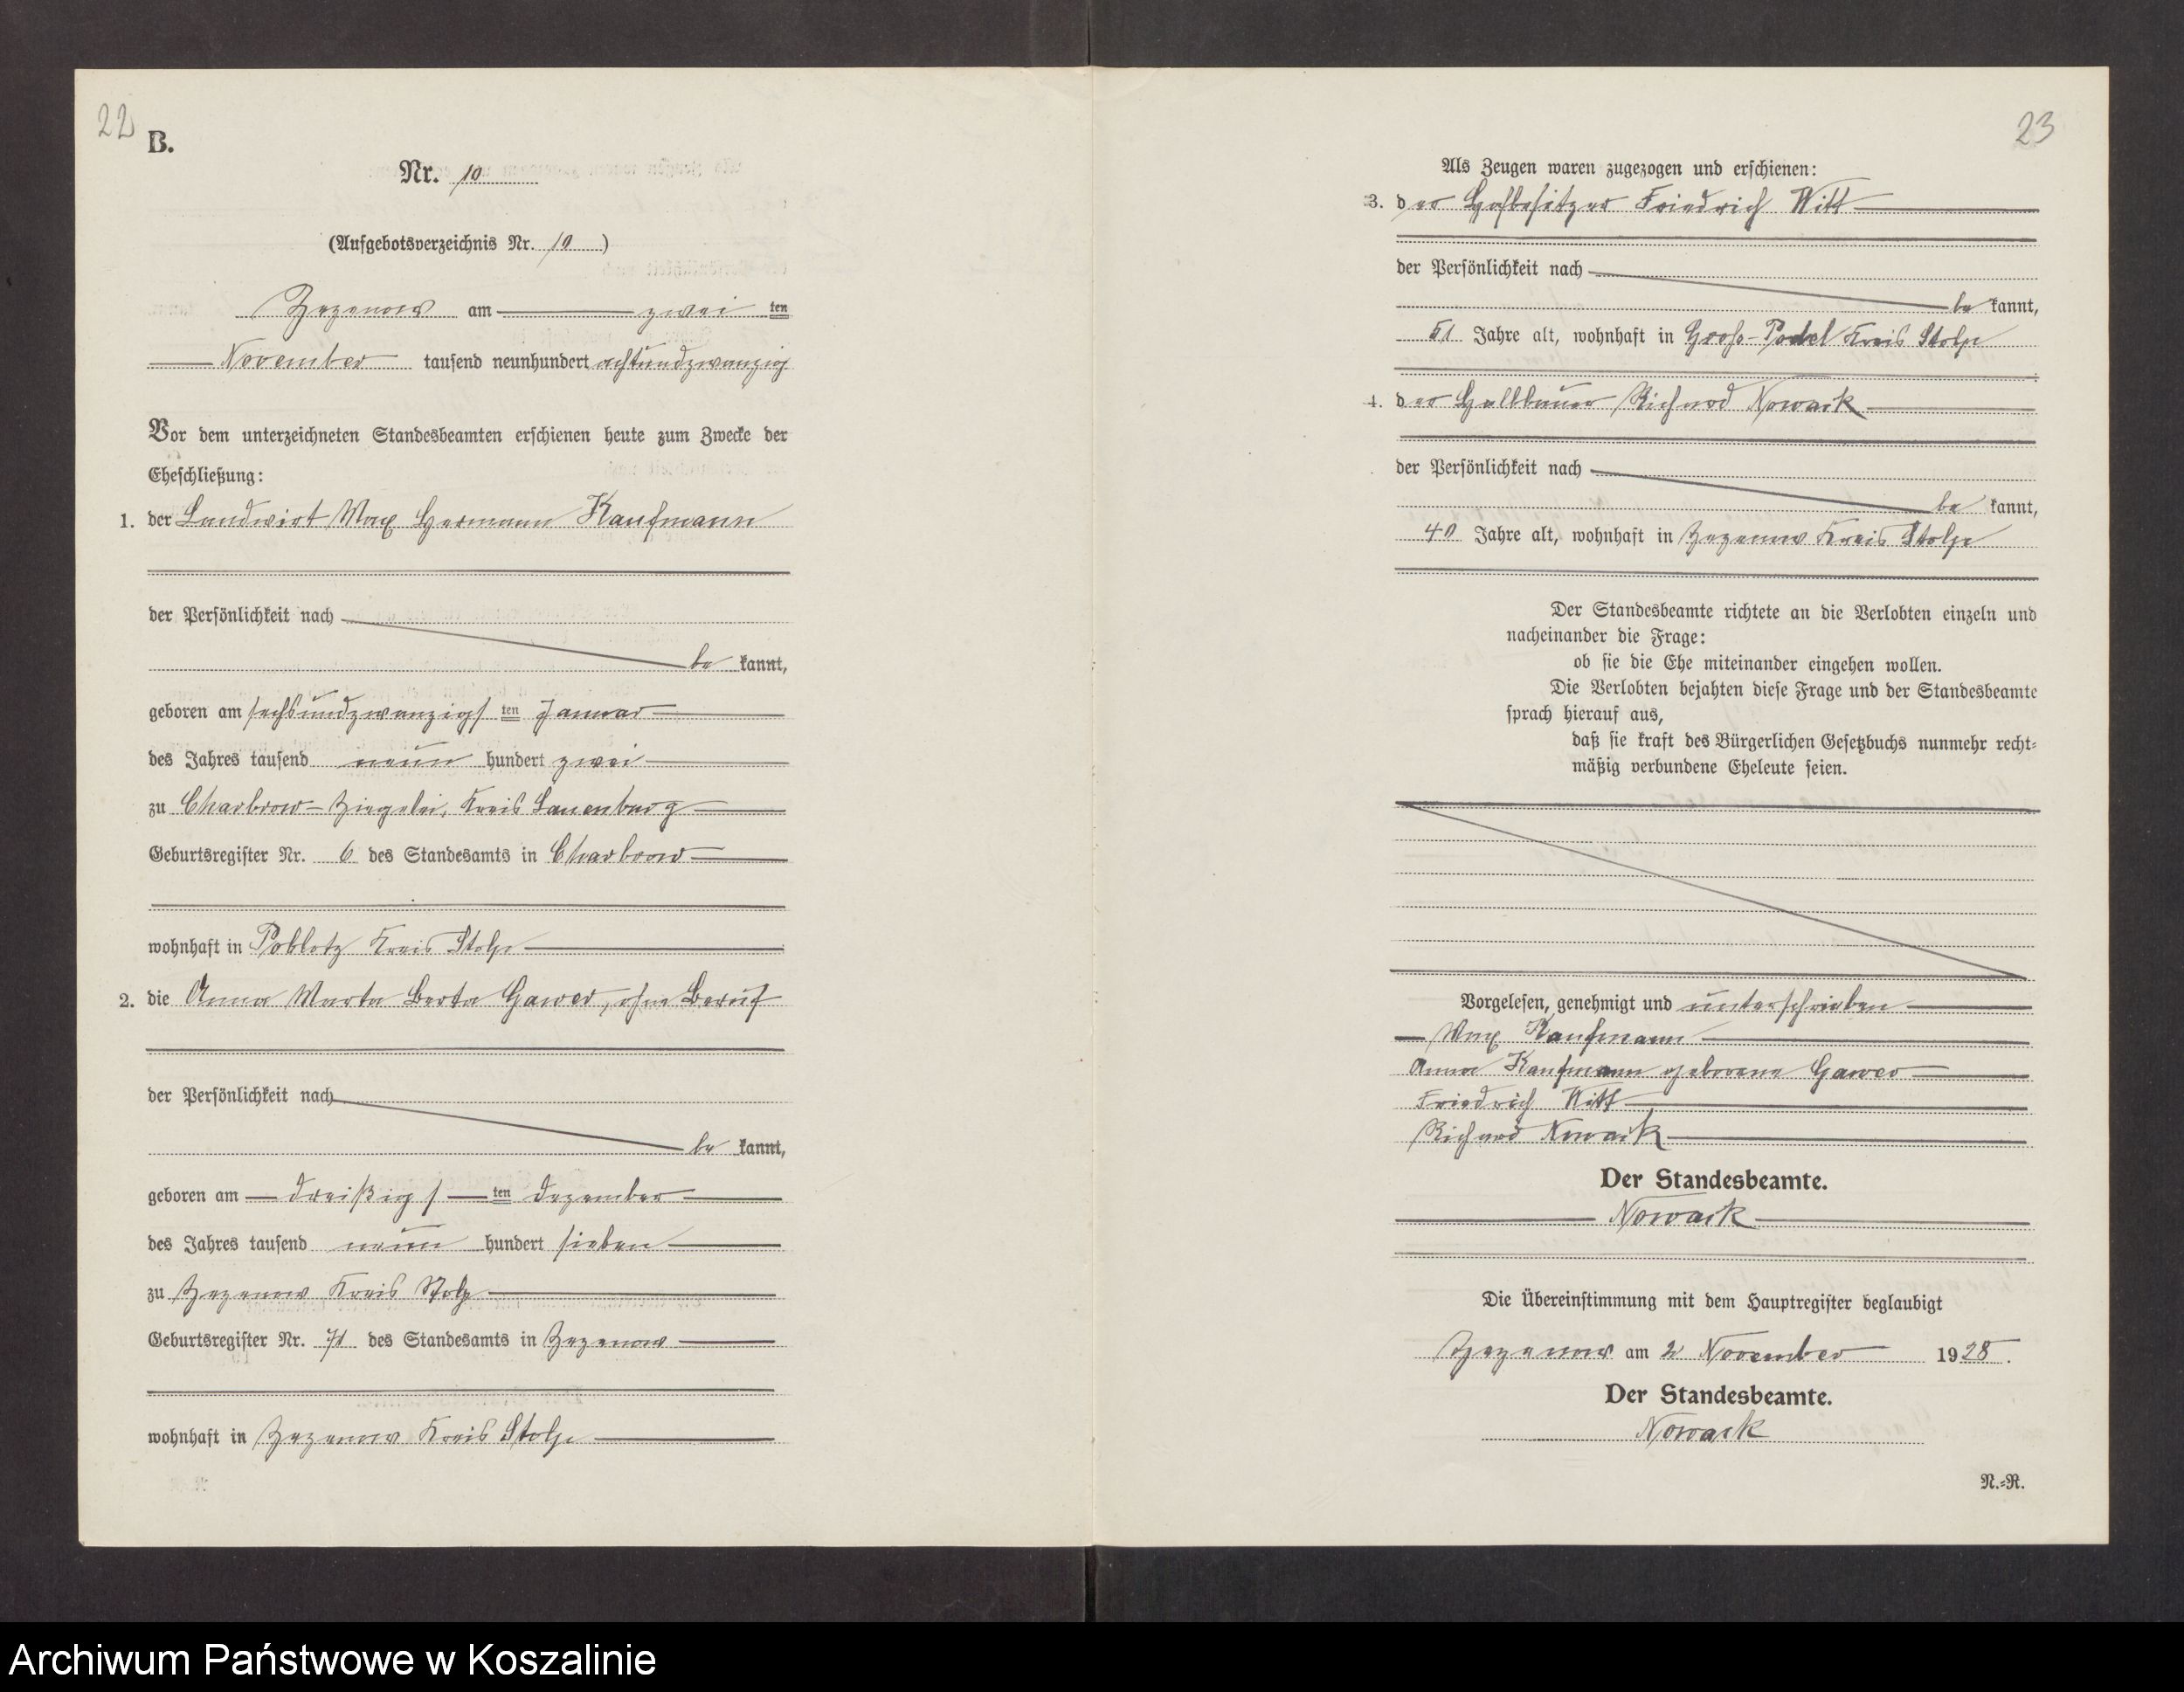 22
B.
Nr. 10
(Aufgebotsverzeichnis Nr. 10)
Zezenow am zwei ten
November tausend neunhundert achtundzwanzig
Vor dem unterzeichneten Standesbeamten erschienen heute zum Zwecke der
Eheschließung:
1. der Landwirt Max Hermann Kaufmann
der Persönlichkeit nach
be kannt,
geboren am sechsundzwanzigs ten Januar
des Jahres tausend neun hundert zwei
zu Charbrow-Ziegelei, Kreis Lauenburg
Geburtsregister Nr. 6 des Standesamts in Charbrow
wohnhaft in Poblotz Kreis Stolp
2. die Anna Marta Berta Gawer, ohne Beruf
der Persönlichkeit nach
be kannt,
geboren am dreißigs ten Dezember
des Jahres tausend neun hundert sieben
zu Zezenow Kreis Stolp
Geburtsregister Nr. des Standesamts in Zezenow
wohnhaft in Zezenow Kreis Stolp
23
Als Zeugen waren zugezogen und erschienen:
3. der Hofbesitzer Friedrich Witt
der Persönlichkeit nach
be kannt,
Jahre alt, wohnhaft in Kreis Stolp
4. der Halbbauer Richard Nowack
der Persönlichkeit nach
be kannt,
40 Jahre alt, wohnhaft in Zezenow Kreis Stolp
Der Standesbeamte richtete an die Verlobten einzeln und
nacheinander die Frage:
ob sie die Ehe miteinander eingehen wollen.
Die Verlobten bejahten diese Frage und der Standesbeamte
sprach hierauf aus,
daß sie kraft des Bürgerlichen Gesetzbuchs nunmehr recht-
mäßig verbundene Eheleute seien.
Vorgelesen, genehmigt und unterschrieben
Max Kaufmann
Anna Kaufmann geborene Gawer
Friedrich Witt
Richard Nowack
Der Standesbeamte.
Nowack
Die Übereinstimmung mit dem Hauptregister beglaubigt
Zezenow am 2 November 1928.
Der Standesbeamte.
Nowack
N.-R.
Archiwum Państwowe w Koszalinie